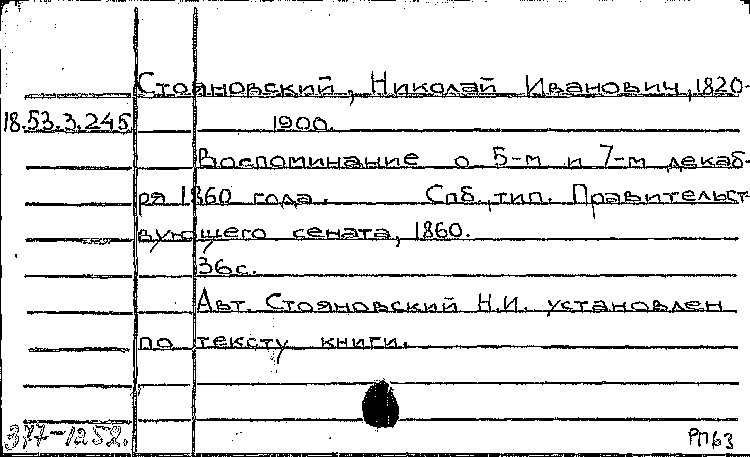 Стояновский, Николай Иванович, 1820-
18.53.3.245 1900.
Воспоминание о 5-м и 7-м декаб-
ря 1860 года. Спб, тип. Правительст
вующего сената, 1860.
36с.
Авт. Стояновский Н.И. установлен
по тексту книги.
377-1252. РП63